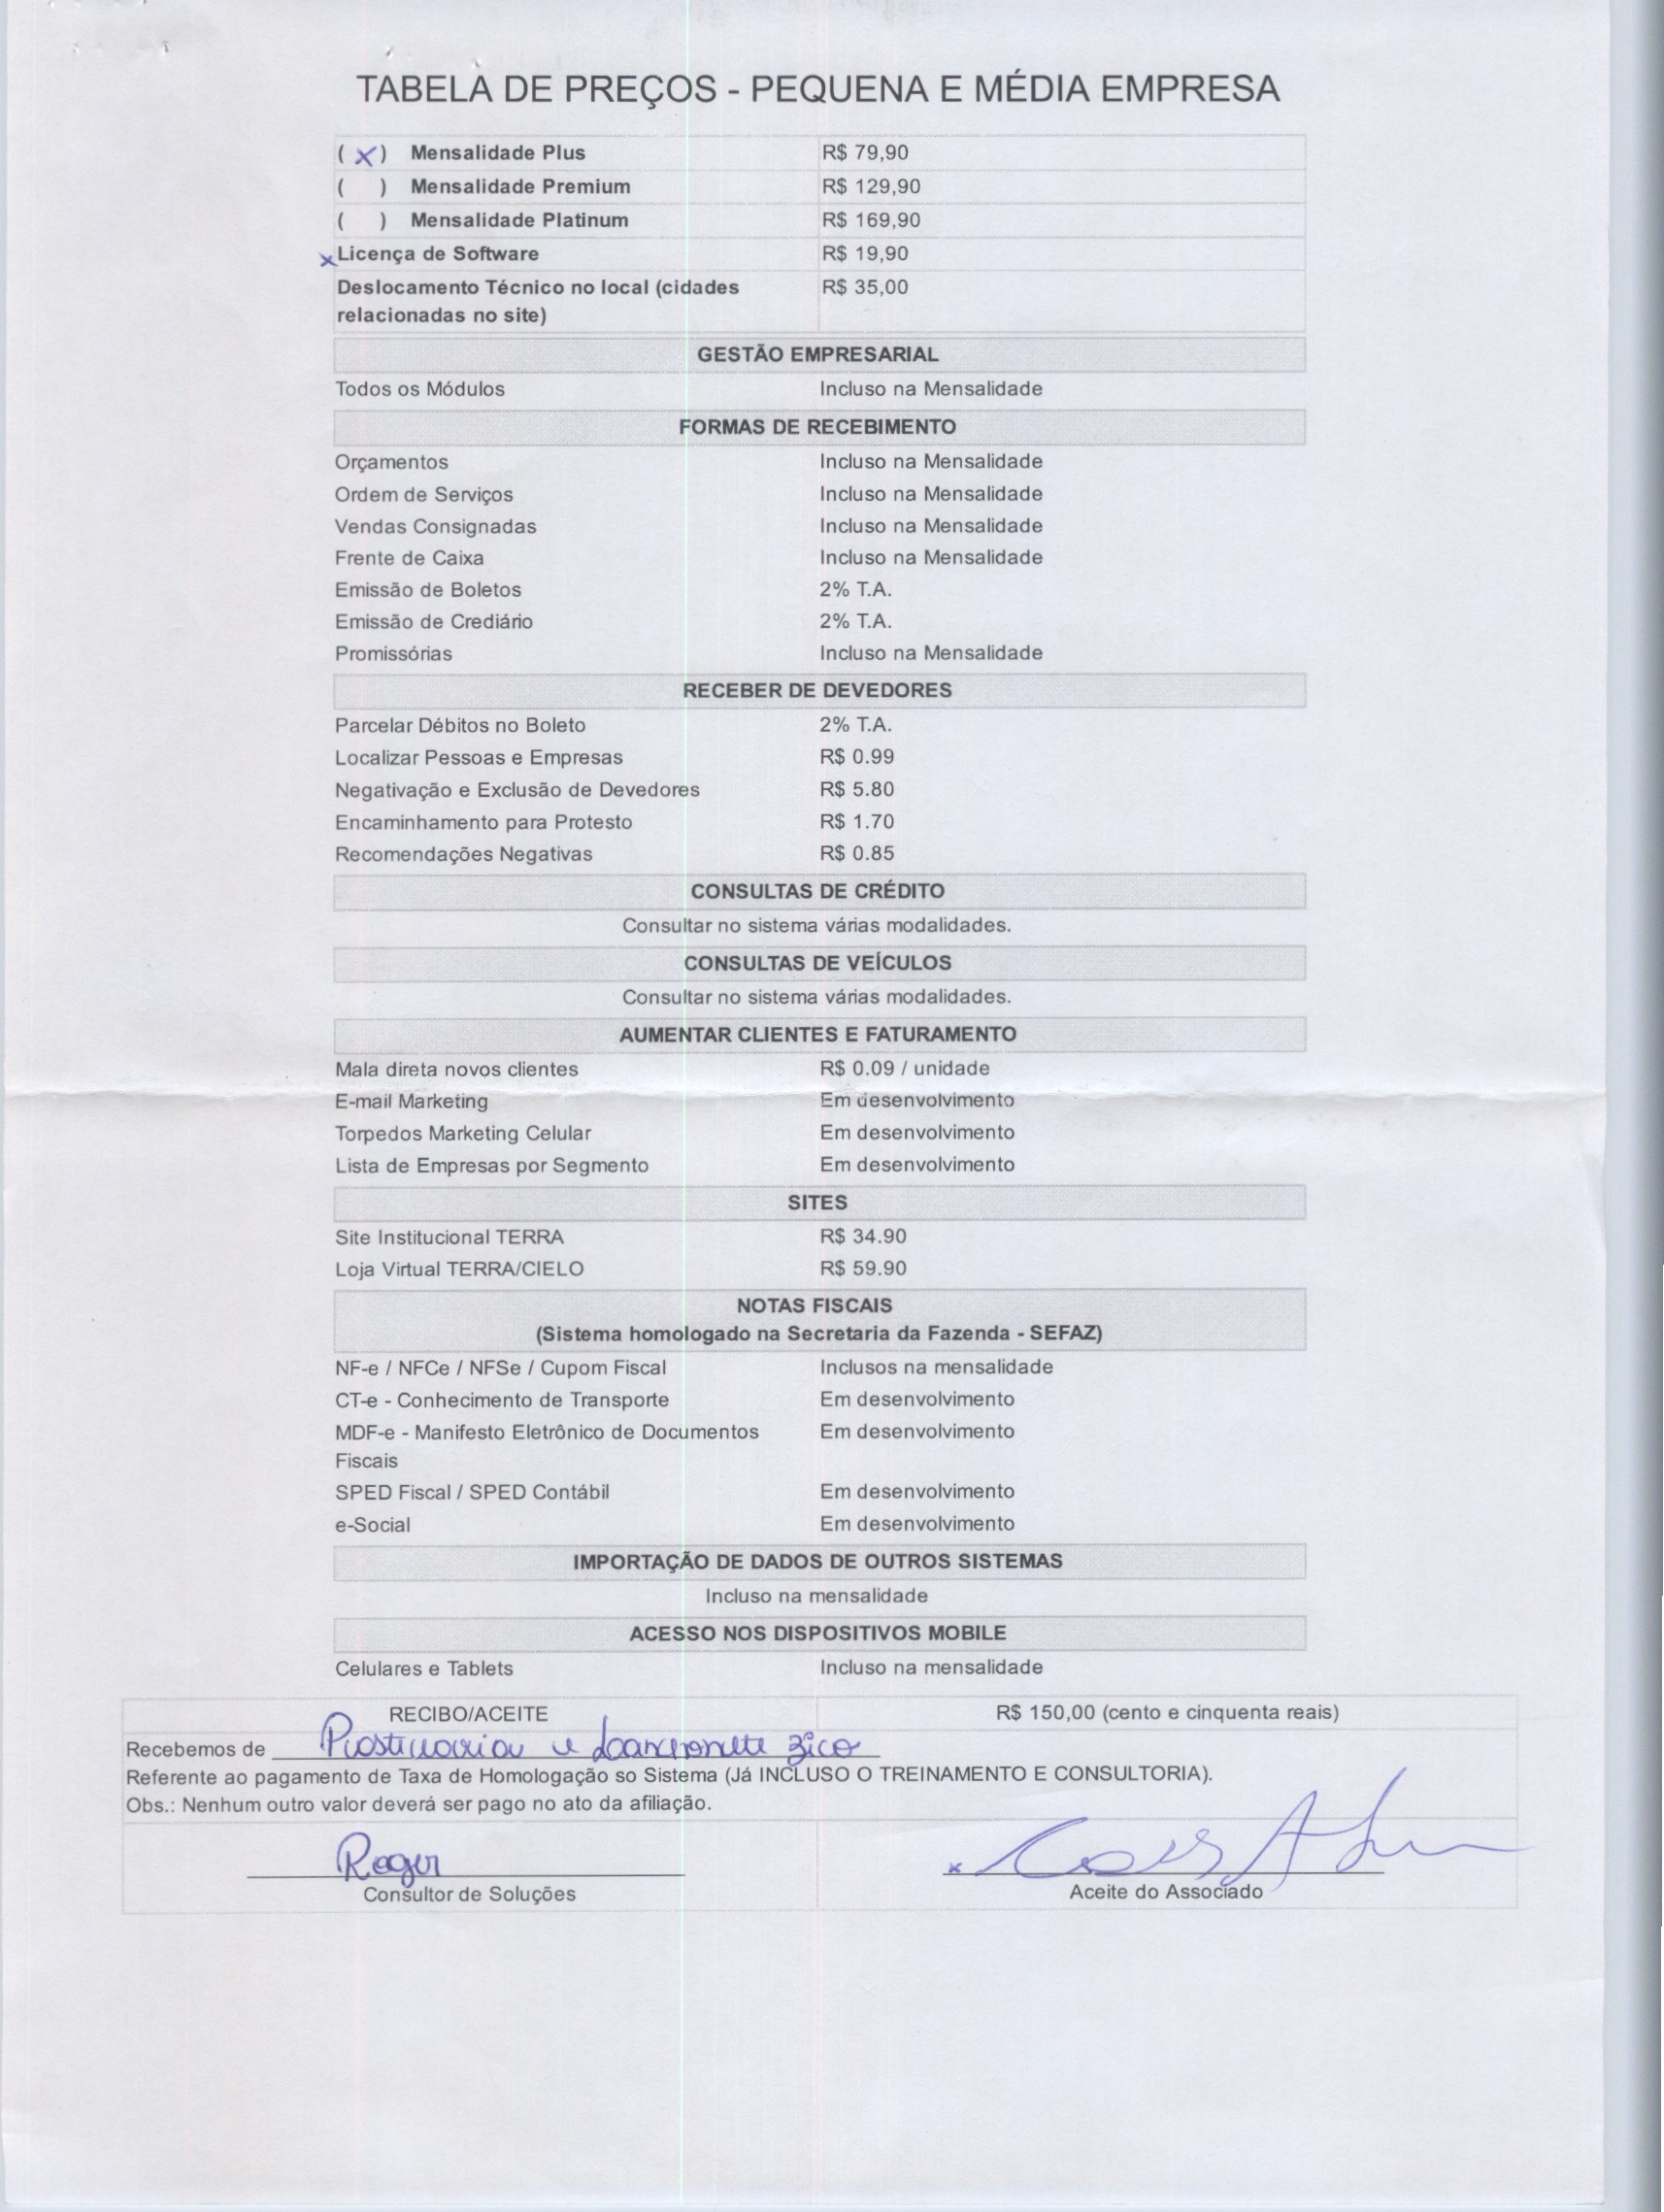 TABELA DE PREÇOS - PEQUENA E MÉDIA EMPRESA
( x ) Mensalidade Plus R$ 79,90
( ) Mensalidade Premium R$ 129,90
( ) Mensalidade Platinum R$ 169,90
x Licença de Software R$ 19,90
Deslocamento Técnico no local (cidades R$ 35,00
relacionadas no site)
GESTÃO EMPRESARIAL
Todos os Módulos Incluso na Mensalidade
FORMAS DE RECEBIMENTO
Orçamentos Incluso na Mensalidade
Ordem de Serviços Incluso na Mensalidade
Vendas Consignadas Incluso na Mensalidade
Frente de Caixa Incluso na Mensalidade
Emissão de Boletos 2% T.A.
Emissão de Crediário 2% T.A.
Promissórias Incluso na Mensalidade
RECEBER DE DEVEDORES
Parcelar Débitos no Boleto 2% T.A.
Localizar Pessoas e Empresas R$ 0.99
Negativação e Exclusão de Devedores R$ 5.80
Encaminhamento para Protesto R$ 1.70
Recomendações Negativas R$ 0.85
CONSULTAS DE CRÉDITO
Consultar no sistema várias modalidades.
CONSULTAS DE VEÍCULOS
Consultar no sistema várias modalidades.
AUMENTAR CLIENTES E FATURAMENTO
Mala direta novos clientes R$ 0.09 / unidade
E-mail Marketing Em desenvolvimento
Torpedos Marketing Celular Em desenvolvimento
Lista de Empresas por Segmento Em desenvolvimento
SITES
Site Institucional TERRA R$ 34.90
Loja Virtual TERRA/CIELO R$ 59.90
NOTAS FISCAIS
(Sistema homologado na Secretaria da Fazenda - SEFAZ)
NF-e / NFCe / NFSe / Cupom Fiscal Inclusos na mensalidade
CT-e - Conhecimento de Transporte Em desenvolvimento
MDF-e - Manifesto Eletrônico de Documentos Em desenvolvimento
Fiscais
SPED Fiscal / SPED Contábil Em desenvolvimento
e-Social Em desenvolvimento
IMPORTAÇÃO DE DADOS DE OUTROS SISTEMAS
Incluso na mensalidade
ACESSO NOS DISPOSITIVOS MOBILE
Celulares e Tablets Incluso na mensalidade
RECIBO/ACEITE R$ 150,00 (cento e cinquenta reais)
Recebemos de e Lanchonete Zico
Referente ao pagamento de Taxa de Homologação so Sistema (Já INCLUSO O TREINAMENTO E CONSULTORIA).
Obs.: Nenhum outro valor deverá ser pago no ato da afiliação.
Roger x
Consultor de Soluções Aceite do Associado